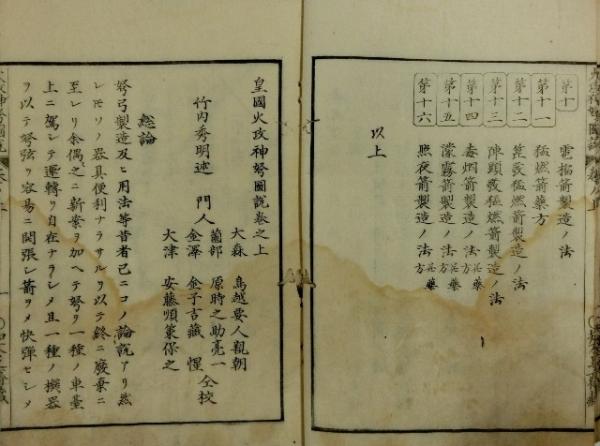 第十 電槍箭製造ノ法
第十一 猛燃箭藥方
第十二 箆袋猛燃箭製造ノ法
第十三 陣頭袋猛燃箭製造ノ法
第十四 毒烟箭製造ノ法 並藥方
第十五 濛霧箭製造ノ法 並藥方
第十六 照夜箭製造ノ法 並藥方
以上
皇國火攻神弩圖説卷之上
竹内秀明述 門人
大森 鳥越要人親朝
薗部 原時之助亮一
金澤 金子吉藏惺 仝校
大津 安藤順策保之
総論
弩弓製造及ヒ用法等昔者已ニコノ論説アリ然
レモソノ器具便利ナラサルヲ以テ終ニ廢棄ニ
至レリ余偶之ニ新案ヲ加ヘテ弩ヲ一種ノ車臺
上ニ駕シテ運轉ヲ自在ナラシメ且一種ノ撰器
ヲ以テ弩弦ヲ容易ニ関張シ箭ヲメ快彈セシメ